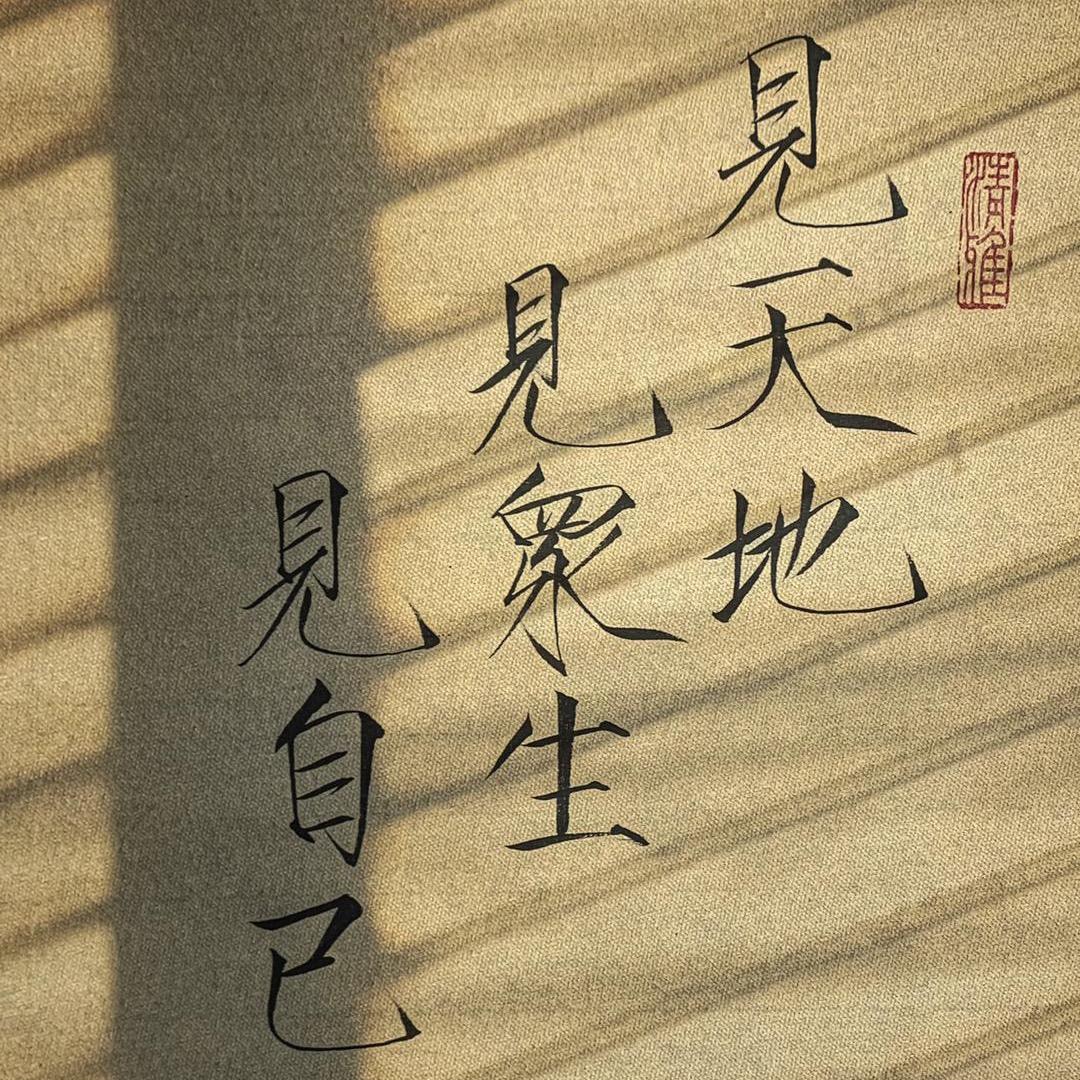 清雅
見天地
見衆生
見自己